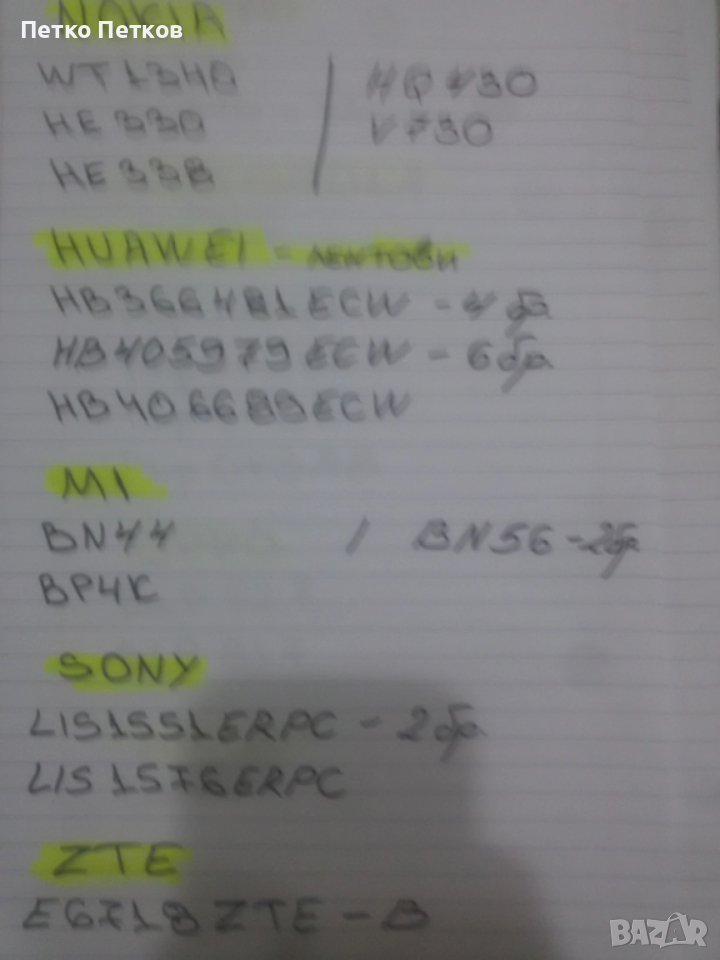 Петко Петков
NOKIA
WT1340 | HQ430
HE330 | V730
HE338
HUAWEI - лентови
HB366481ECW - 4 бр
HB405979ECW - 6 бр
HB406689ECW
MI
BN44 / BN56 - 2бр
BP4K
SONY
LIS1551ERPC - 2 бр
LIS1576ERPC
ZTE
E6718 ZTE - B
BAZAR